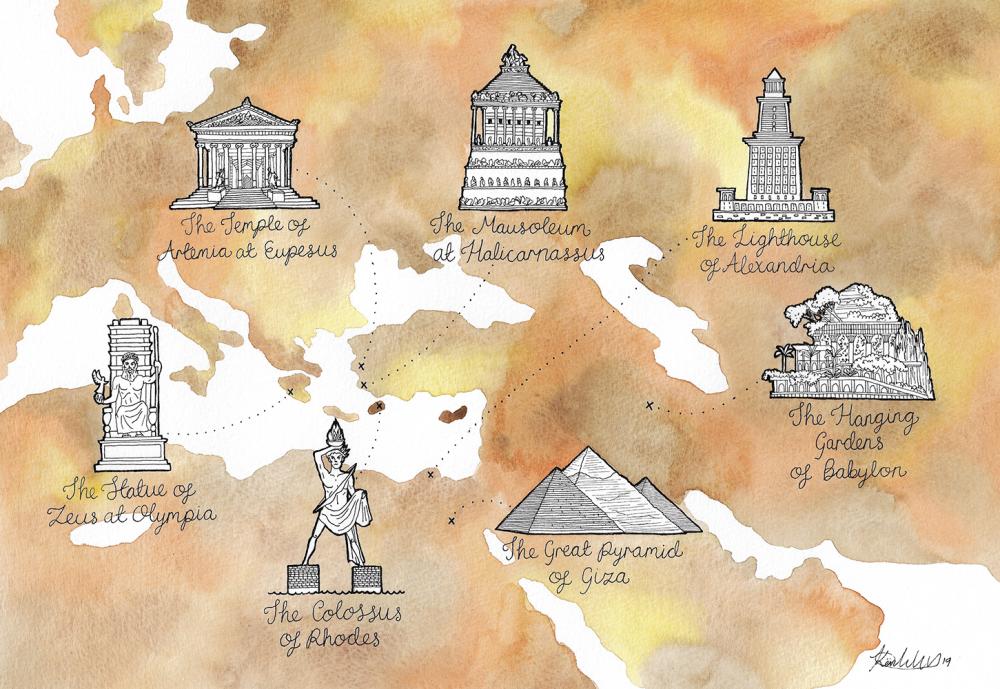 The Temple of
Artemia at Eupesus
The Mausoleum
at Halicarnassus
The Lighthouse
of Alexandria
The Hanging
Gardens
of Babylon
The Statue of
Zeus at Olympia
The Great Pyramid
of Giza
The Colossus
of Rhodes
19